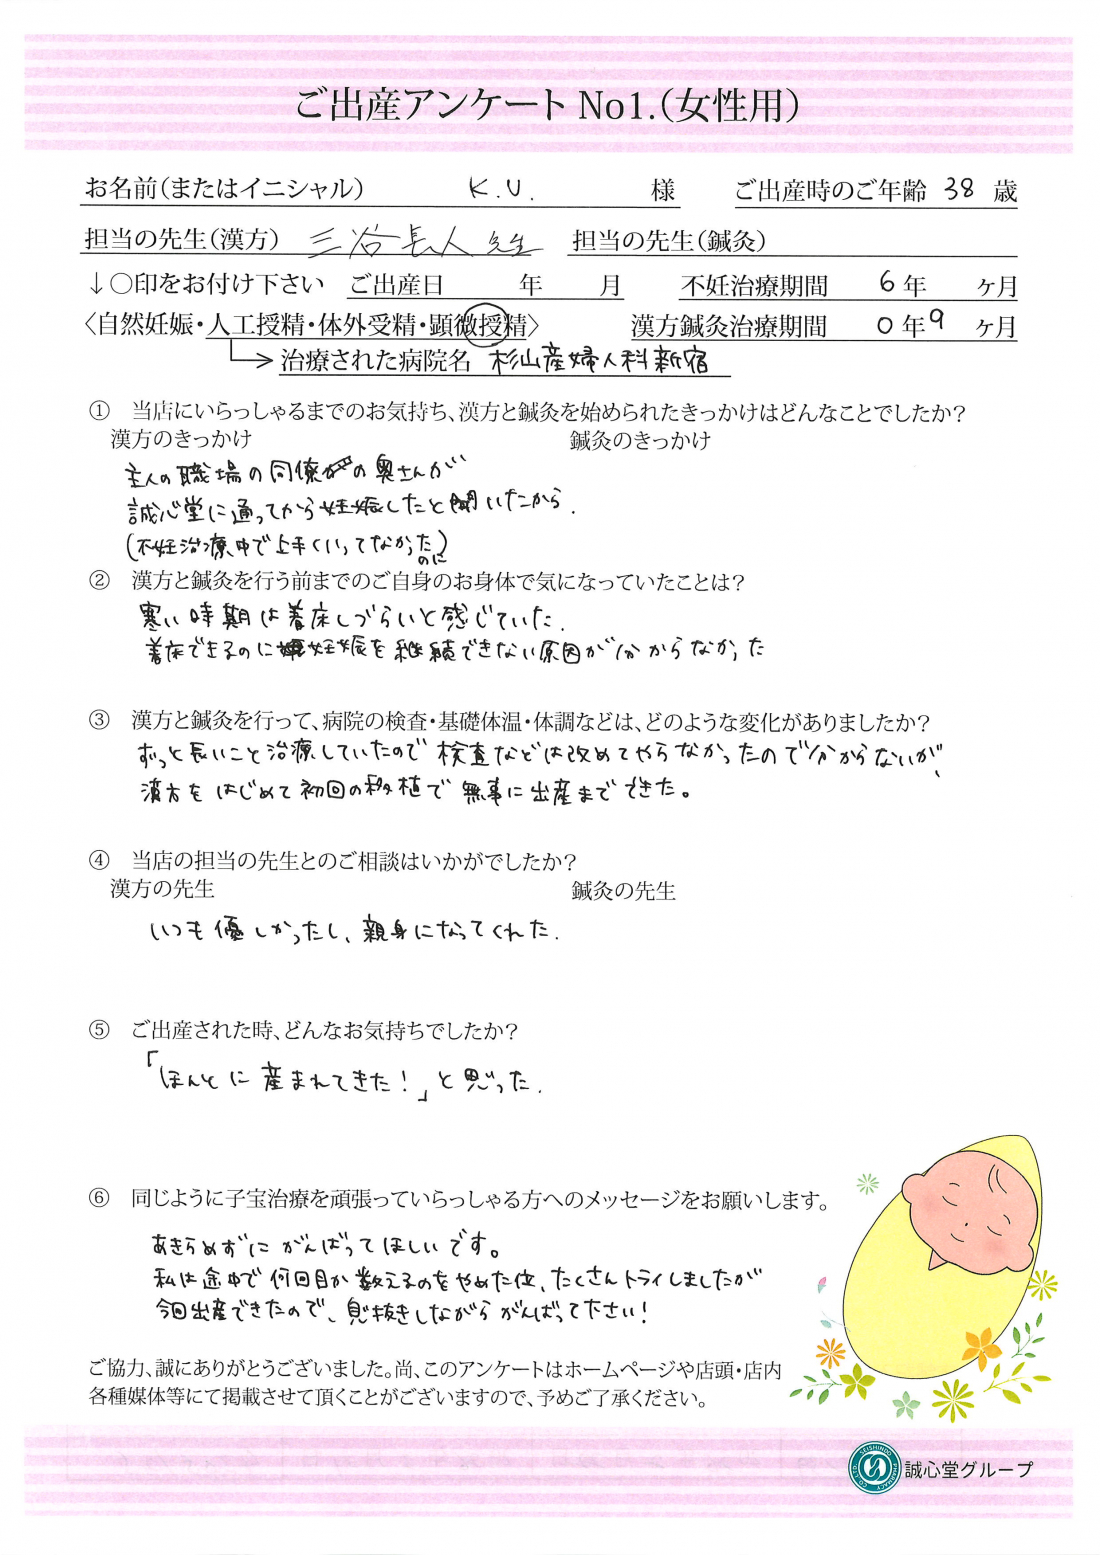 ご出産アンケート No1.(女性用)
お名前(またはイニシャル) K.U. 様 ご出産時のご年齢 38 歳
担当の先生(漢方) 三谷長人先生 担当の先生(鍼灸)
↓〇印をお付け下さい ご出産日 年 月 不妊治療期間 6年 ヶ月
〈自然妊娠・人工授精・体外受精・顕微授精〉 漢方鍼灸治療期間 0年9ヶ月
治療された病院名 杉山産婦人科新宿
① 当店にいらっしゃるまでのお気持ち、漢方と鍼灸を始められたきっかけはどんなことでしたか?
漢方のきっかけ 鍼灸のきっかけ
主人の職場の同僚の奥さんが
誠心堂に通ってから妊娠したと聞いたから.
(不妊治療中で上手くいってなかったのに)
② 漢方と鍼灸を行う前までのご自身のお身体で気になっていたことは?
寒い時期は着床しづらいと感じていた.
着床できるのに妊娠を継続できない原因が分からなかった
③ 漢方と鍼灸を行って、病院の検査・基礎体温・体調などは、どのような変化がありましたか?
ずっと長いこと治療していたので検査などは改めてやらなかったので分からないが、
漢方をはじめて初回の移植で無事に出産までできた。
④ 当店の担当の先生とのご相談はいかがでしたか?
漢方の先生 鍼灸の先生
いつも優しかったし、親身になってくれた.
⑤ ご出産された時、どんなお気持ちでしたか?
「ほんとに産まれてきた!」と思った.
⑥ 同じように子宝治療を頑張っていらっしゃる方へのメッセージをお願いします。
あきらめずにがんばってほしいです。
私は途中で何回目か数えるのをやめた位、たくさんトライしましたが
今回出産できたので、息抜きしながらがんばって下さい!
ご協力、誠にありがとうございました。尚、このアンケートはホームページや店頭・店内
各種媒体等にて掲載させて頂くことがございますので、予めご了承ください。
SEISHINDO PHARMACY CO.,LTD.
誠心堂グループ